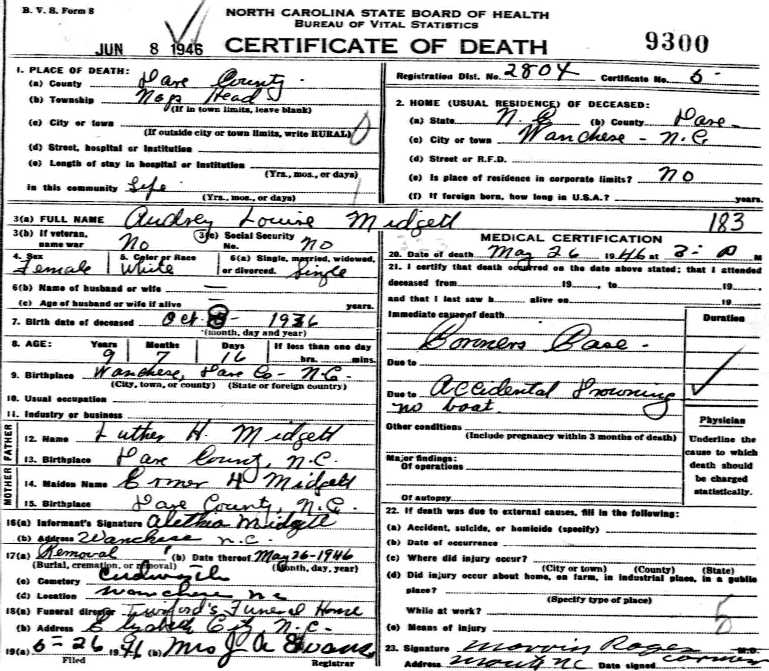 B. V. S. Form 8
NORTH CAROLINA STATE BOARD OF HEALTH
BUREAU OF VITAL STATISTICS
JUN 8 1946
CERTIFICATE OF DEATH
9300
Registration Dist. No. 2804 Certificate No. 5
1. PLACE OF DEATH:
(a) County Dare County
(b) Township Nags Head
(If in town limits, leave blank)
(c) City or town
(If outside city or town limits, write RURAL)
(d) Street, hospital or Institution
(e) Length of stay in hospital or Institution
(Yrs., mos., or days)
in this community Life
(Yrs., mos., or days)
2. HOME (USUAL RESIDENCE) OF DECEASED:
(a) State N. C. (b) County Dare
(c) City or town Wanchese - N.C.
(d) Street or R.F.D.
(e) Is place of residence in corporate limits? No
(f) If foreign born, how long in U.S.A.? years.
3(a) FULL NAME Audrey Louise Midgett 183
3(b) If veteran, name war No 3(c) Social Security No. No
4. Sex Female 5. Color or Race White 6(a) Single, married, widowed, or divorced. Single
6(b) Name of husband or wife —
(c) Age of husband or wife if alive years.
7. Birth date of deceased Oct 1936
(month, day and year)
8. AGE: Years 9 Months 7 Days 16 If less than one day hrs. min.
9. Birthplace Wanchese, Dare Co - N.C.
(City, town, or county) (State or foreign country)
10. Usual occupation
11. Industry or business
FATHER
12. Name Luther H. Midgett
13. Birthplace Dare County, N.C.
MOTHER
14. Maiden Name H Midgett
15. Birthplace Dare County, N.C.
16(a) Informant's Signature Alethia Midgett
(b) Address Wanchese N.C.
17(a) Removal (b) Date thereof May 26-1946
(Burial, cremation, or removal) (Month, day, year)
(c) Cemetery Cudworth
(d) Location Wanchese NC
18(a) Funeral director Twiford's Funeral Home
(b) Address Elizabeth City N.C.
19(a) 5-26 1946 (b) Mrs J A Evans
Filed Registrar
MEDICAL CERTIFICATION
20. Date of death May 26 1946 at 3:- P M
21. I certify that death occurred on the date above stated; that I attended
deceased from 19 , to 19 ,
and that I last saw h alive on 19
Immediate cause of death
Duration
Corners Case -
Due to
Due to Accidental Drowning
no boat
Other conditions
(Include pregnancy within 3 months of death)
Major findings:
Of operations
Of autopsy
Physician
Underline the cause to which death should be charged statistically.
22. If death was due to external causes, fill in the following:
(a) Accident, suicide, or homicide (specify)
(b) Date of occurrence
(c) Where did injury occur?
(City or town) (County) (State)
(d) Did injury occur about home, on farm, in industrial place, in a public
place?
(Specify type of place)
While at work?
(e) Means of injury
23. Signature Marvin Rogers M.D.
Address NC Date signed